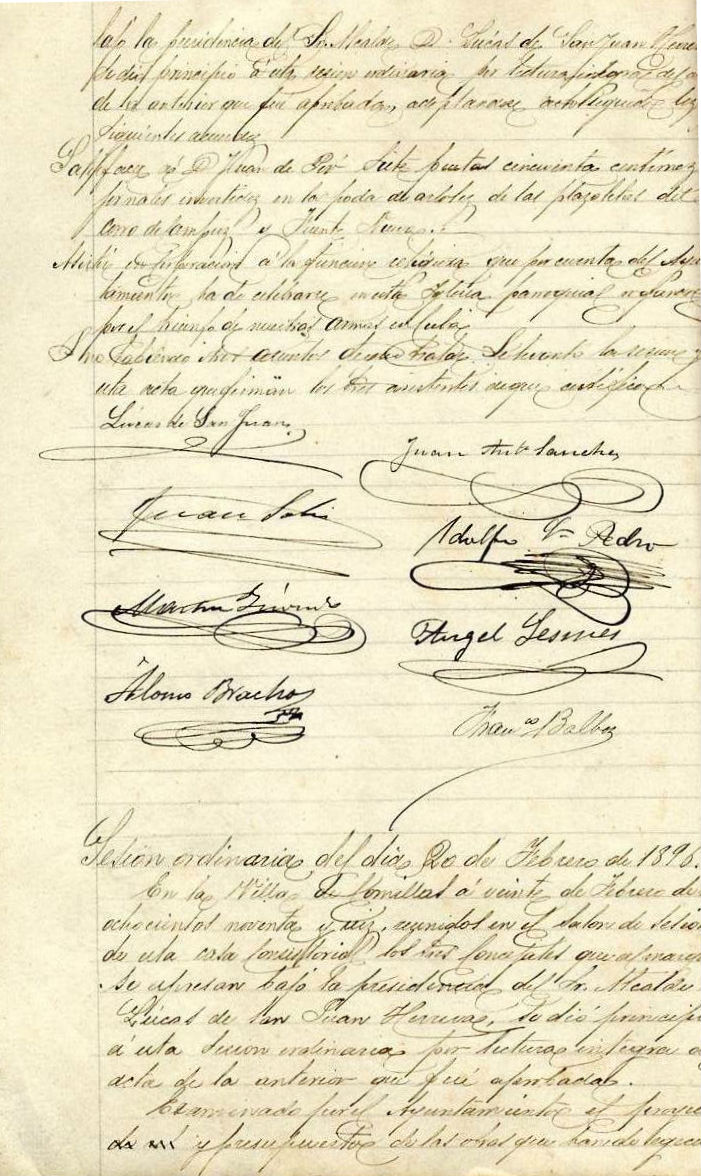 bajo la presidencia del Sr. Alcalde D. Lucas de San Juan Herrera
se dió principio á esta sesion ordinaria por lectura integra del a
de la anterior que fué aprobada, adoptandose acto seguido los
siguientes acuerdos
Satisfacer á D. Juan de siete pesetas cincuenta centimos
jornales invertidos en la poda de arboles de las plazoletas del
Corro de Campuz y Fuente Nueva.
Asistir en corporacion á la funcion religiosa que por cuenta del Ayun
tamiento ha de celebrarse en esta Iglesia parroquial
por el triunfo de nuestras armas en Cuba
Y no habiendo otros asuntos de que tratar, se levantó la sesion y
esta acta que firman los Sres asistentes de que certifico
Lucas de San Juan
Juan Antº Sanchez
Juan Solis
Adolfo Vⁿ Pedro
Martin
Angel Lesmes
Alonso Bracho
Franco Balbas
Sesion ordinaria del dia 20 de Febrero de 1896.
En la Villa de Comillas á veinte de Febrero de
ochocientos noventa y seis, reunidos en el salon de sesion
de esta casa Consistorial los Sres Concejales que al margen
se espresan bajo la presidencia del Sr. Alcalde
Lucas de San Juan Herrera, se dió principio
á esta sesion ordinaria por lectura integra d
acta de la anterior que fué aprobada.
Examinado por el Ayuntamiento el proyec
y presupuesto de las obras que han de